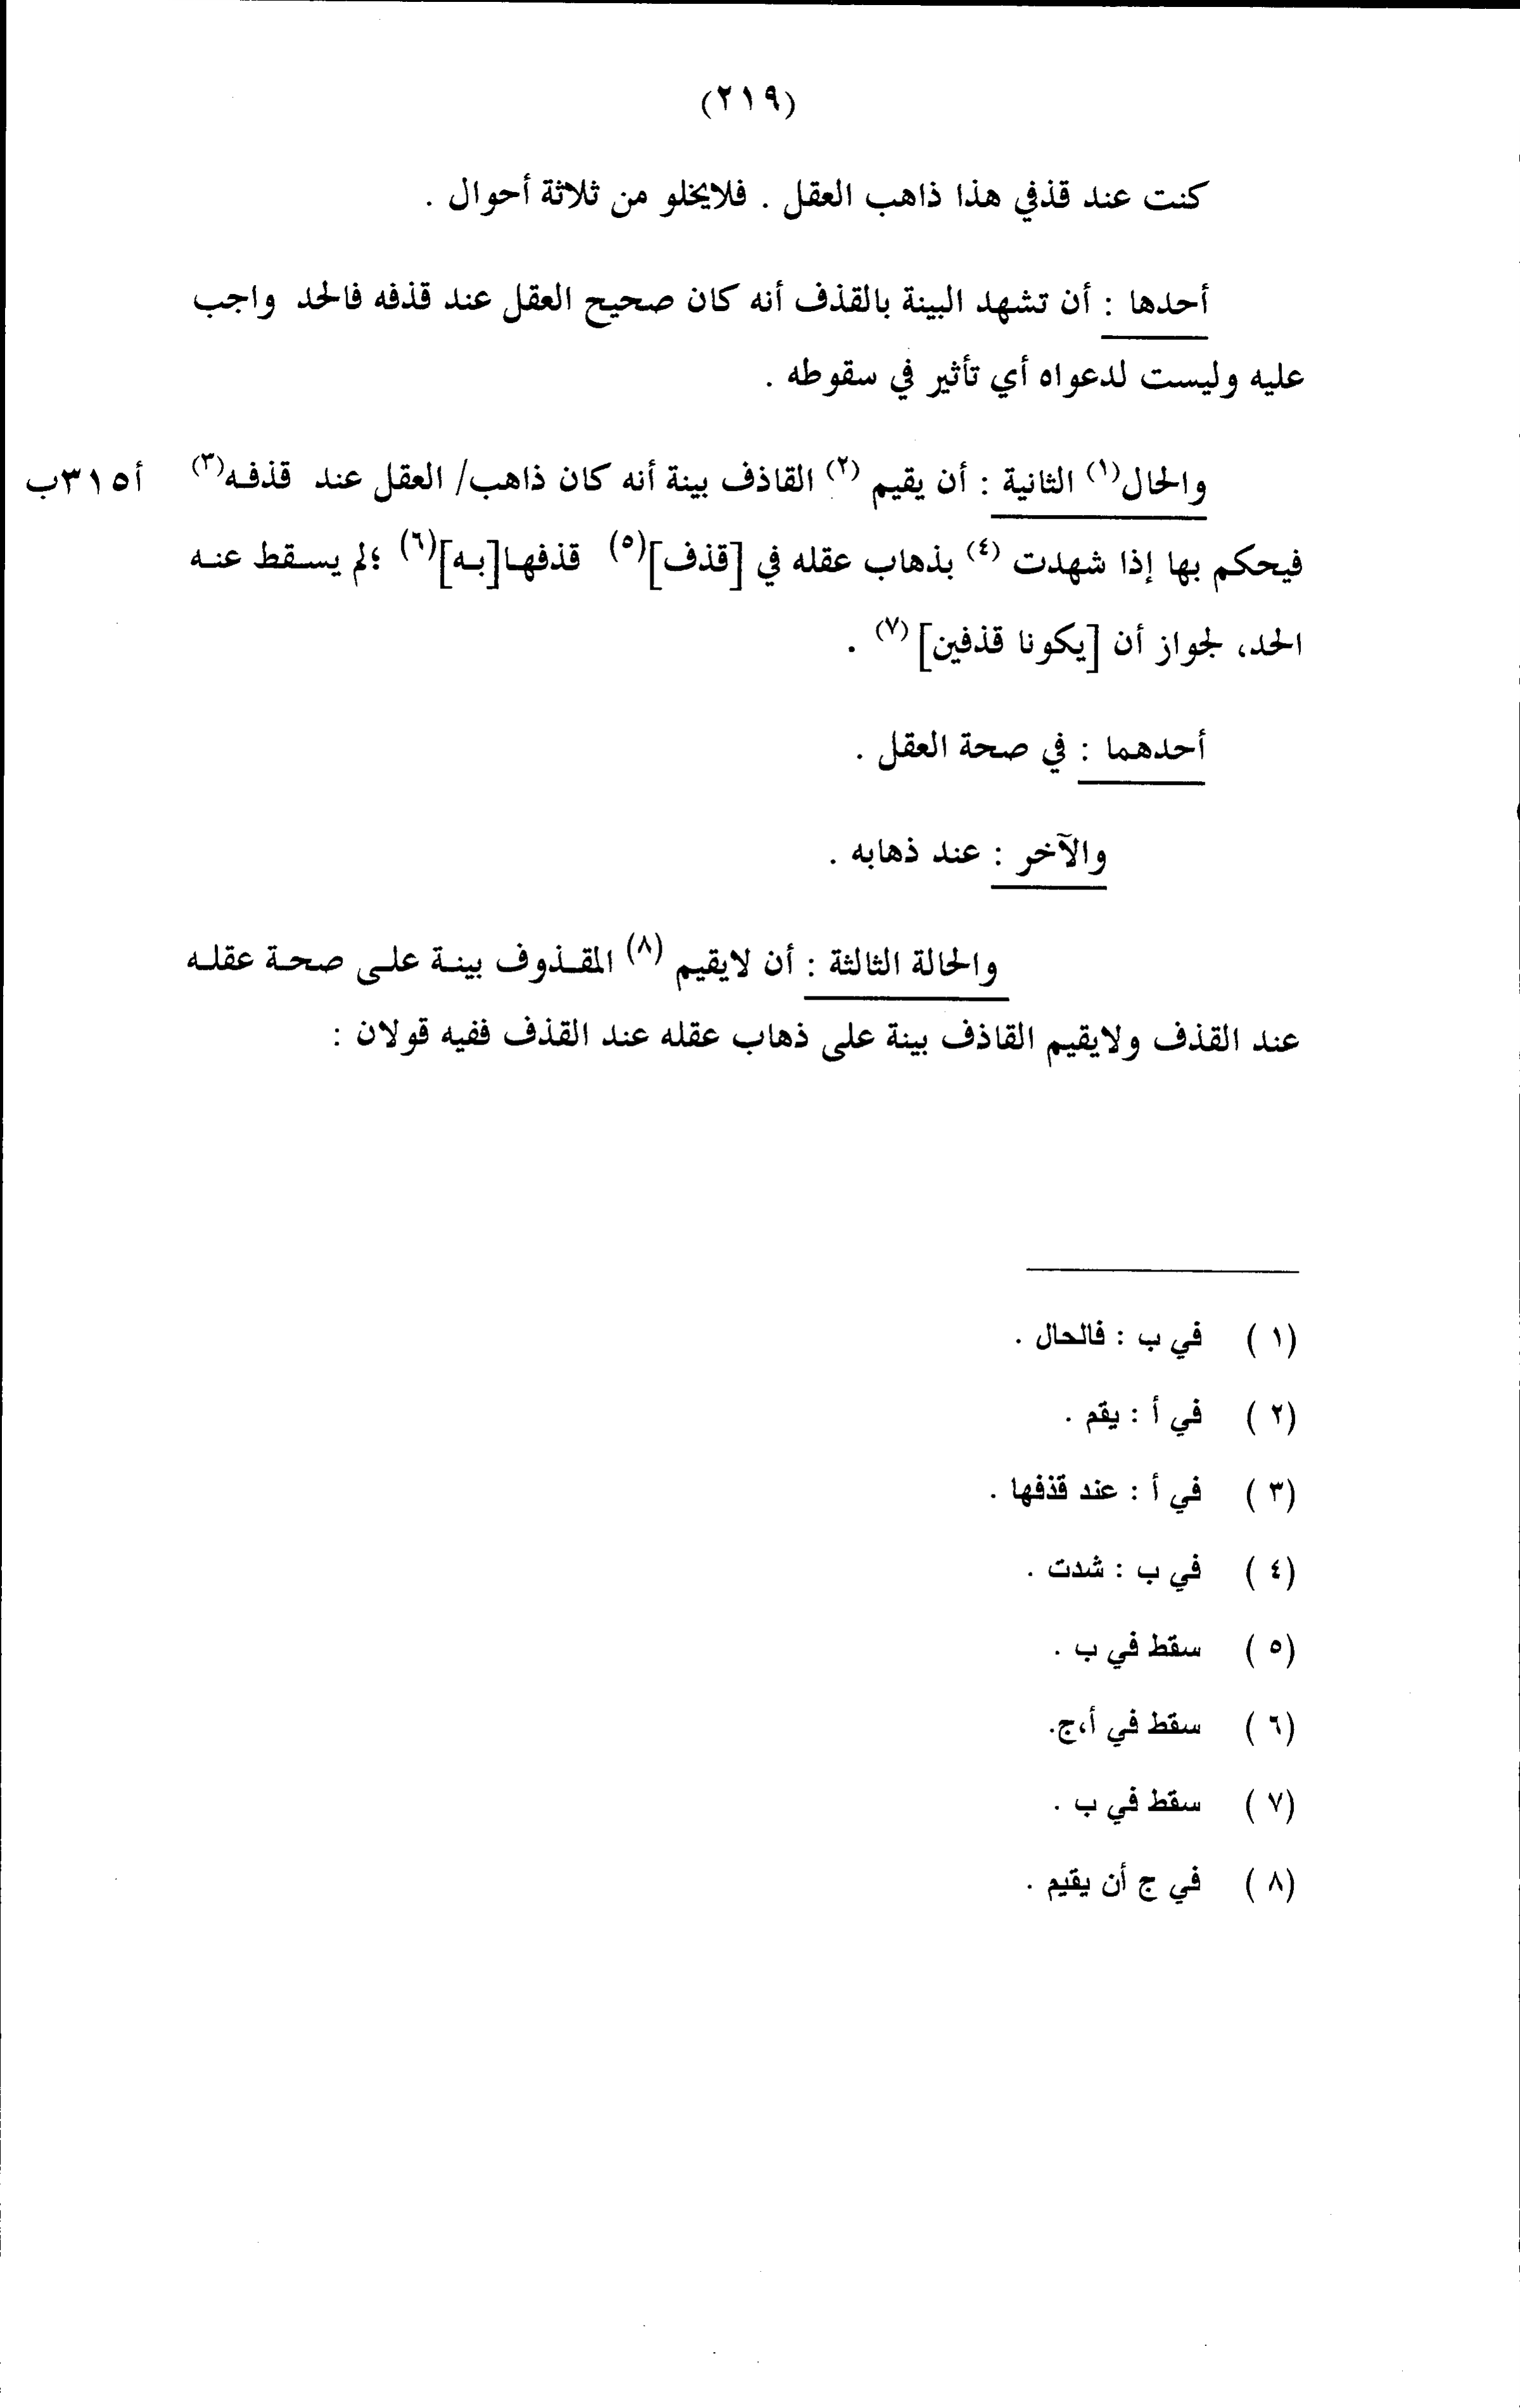 (٢١٩)
كنت عند قذفي هذا ذاهب العقل . فلايخلو من ثلاثة أحوال .
أحدها : أن تشهد البينة بالقذف أنه كان صحيح العقل عند قذفه فالحد واجب
عليه وليست لدعواه أي تأثير في سقوطه .
والحال(١) الثانية : أن يقيم (٢) القاذف بينة أنه كان ذاهب/ العقل عند قذفـه(٣) أ٣١٥ب
فيحكم بها إذا شهدت (٤) بذهاب عقله في [قذف](٥) قذفهـا[بـه](٦) ؛لم يسـقط عنـه
الحد، لجواز أن [يكونا قذفين](٧) .
أحدهما : في صحة العقل .
والآخر : عند ذهابه .
والحالة الثالثة : أن لايقيم (٨) المقـذوف بينـة علـى صحـة عقلـه
عند القذف ولايقيم القاذف بينة على ذهاب عقله عند القذف ففيه قولان :
(١) في ب : فالحال .
(٢) في أ : يقم .
(٣) في أ : عند قذفها .
(٤) في ب : شدت .
(٥) سقط في ب .
(٦) سقط في أ،ج.
(٧) سقط في ب .
(٨) في ج أن يقيم .